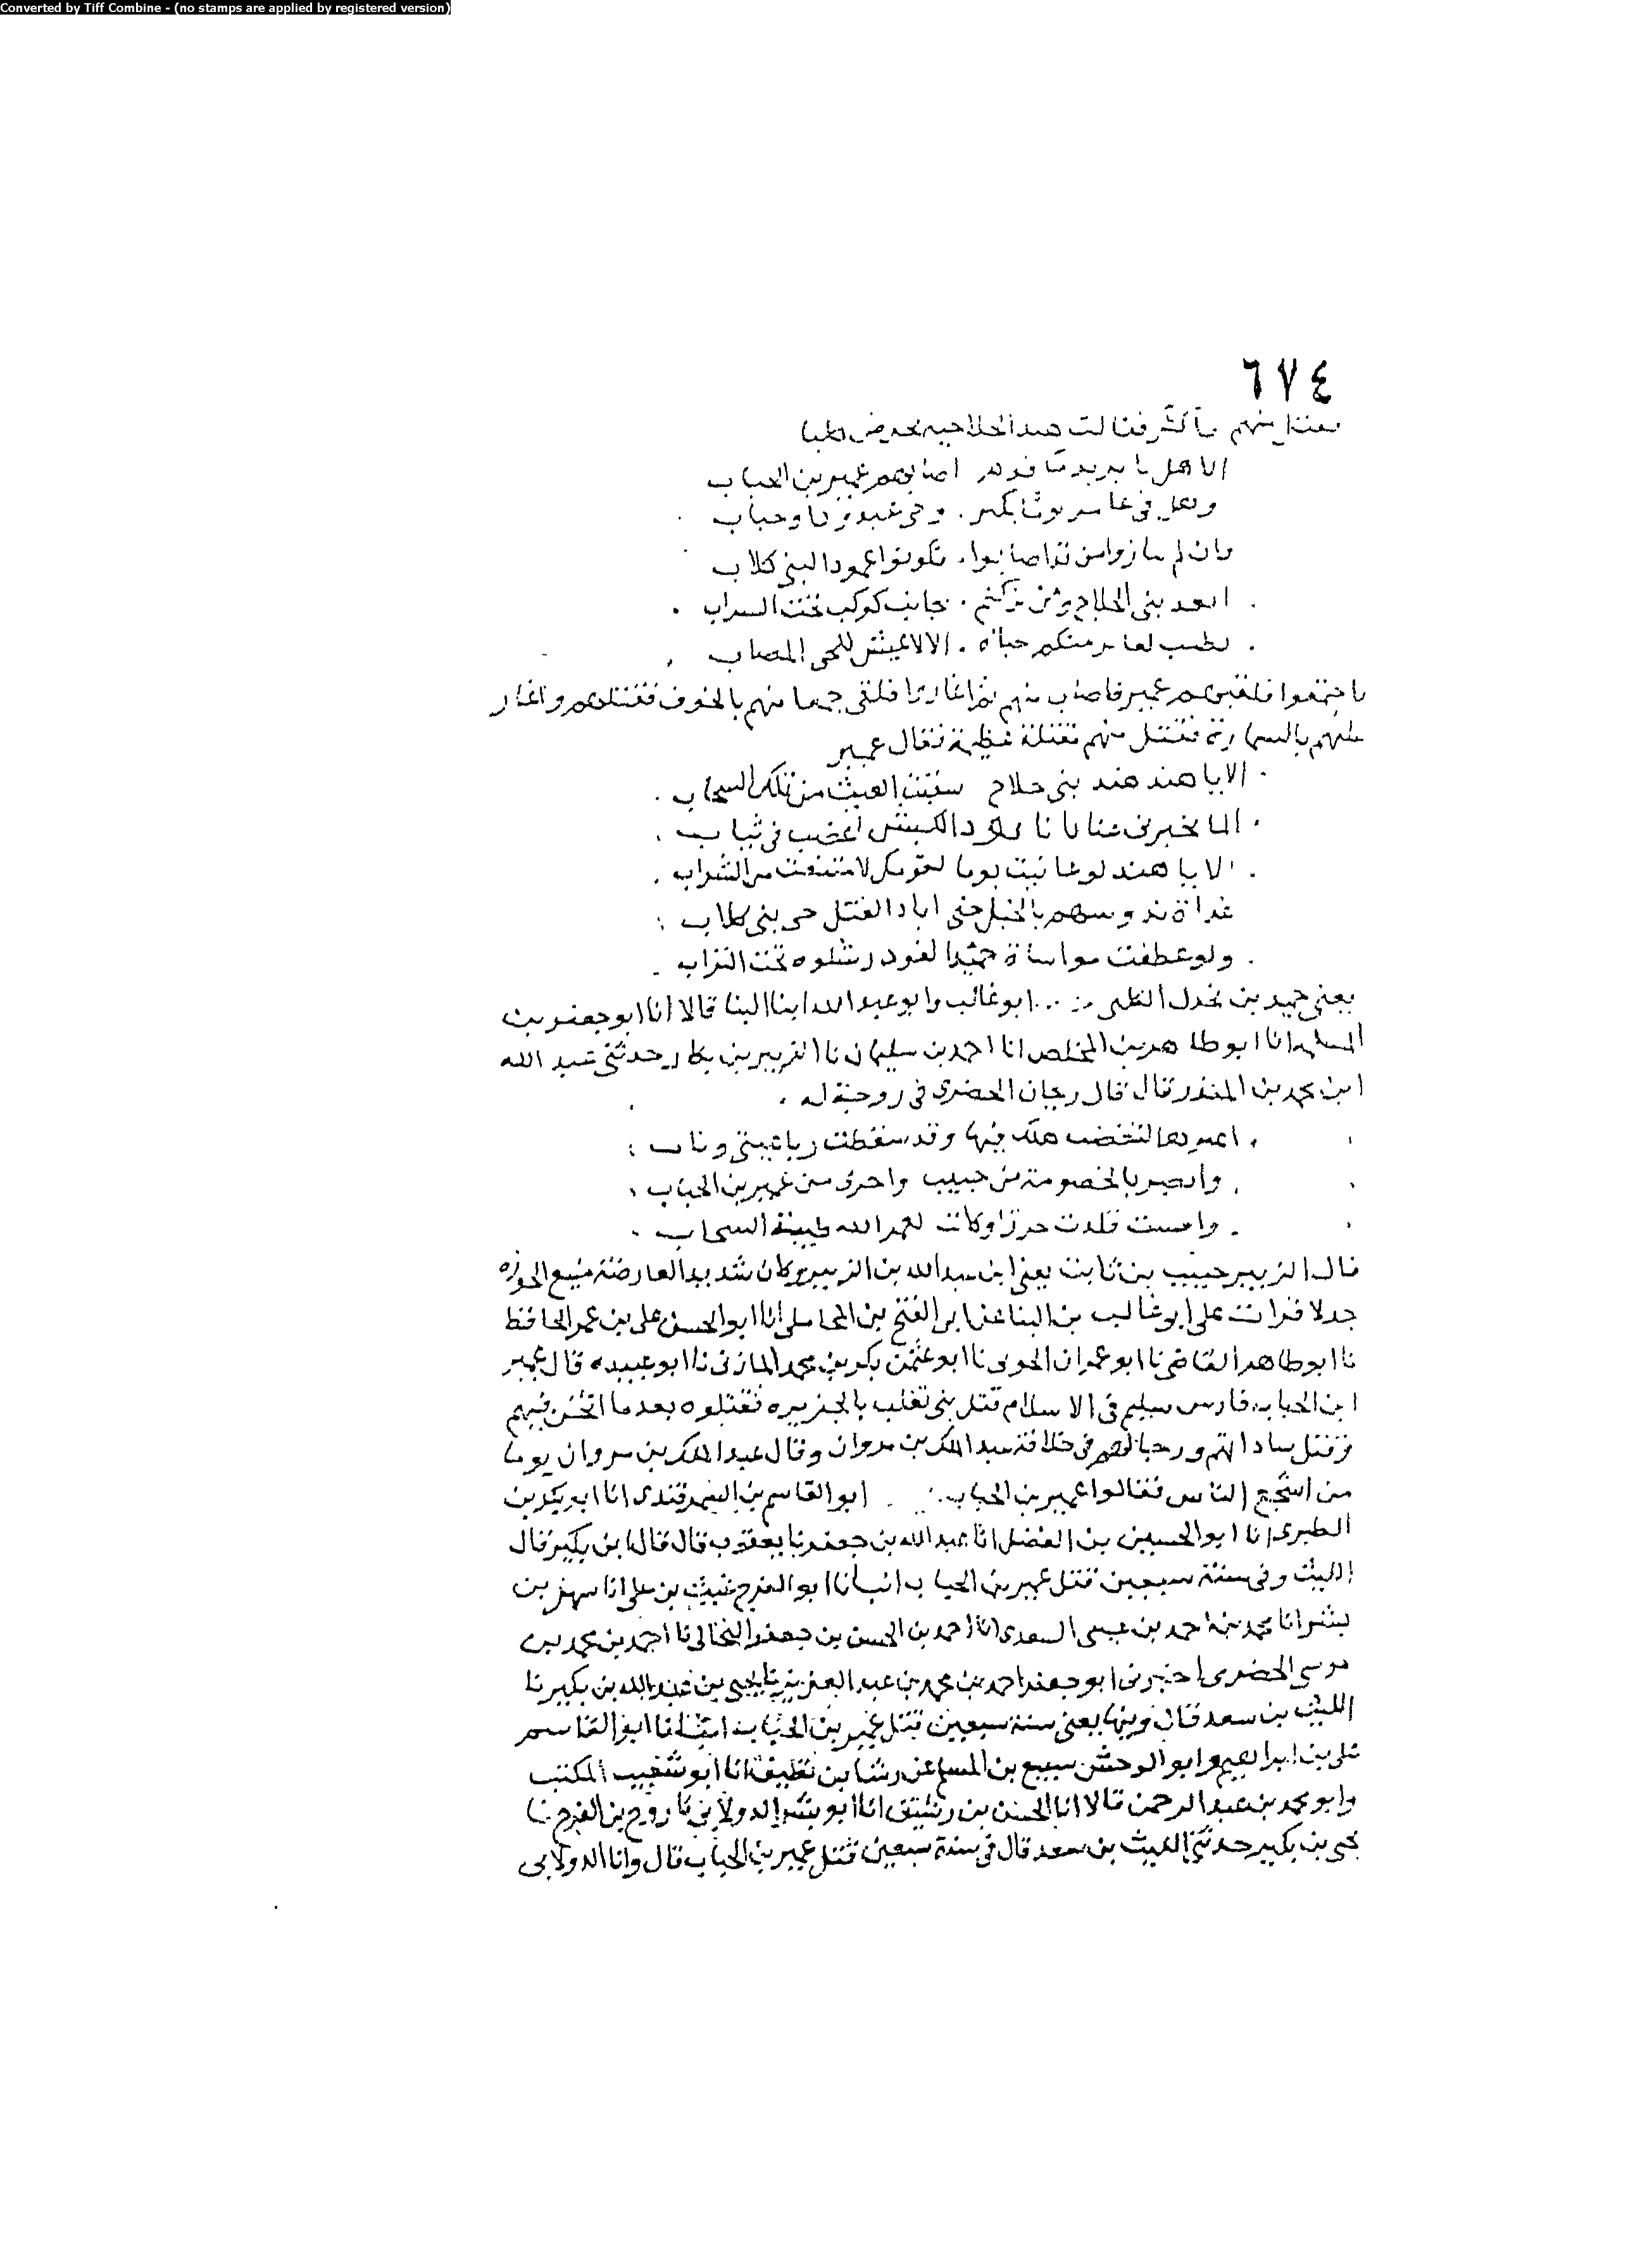 Converted by Tiff Combine - (no stamps are applied by registered version)
٦٧٤
منهم فقالت هند الجلاحية تحرض كلبا
الا هل اصابهم عمير بن الحباب
وهل في عامر يوما نكير . وحي عبد ود او جناب
وان لم من قد اصابوا . تكونوا عبيدا لبني كلاب
ابعد بني الجلاح ومن تركتم . بجانب كوكب تحت التراب
تطيب لغاير منكم حياة . الا لا عيش للحي المصاب
فاجتمعوا فلقيهم عمير فاصاب منهم ثم اغار فلقي جمعا منهم بالجوف فقتلهم واغار
عليهم بالسماوة فقتل منهم مقتلة عظيمة فقال عمير
الا يا هند هند بني جلاح سقيت الغيث من تلك السحاب
الما تخبري عنا بانا نرد الكبش اعضب في تباب
الا يا هند لو عاينت يوما لقومك لامتنعت من الشراب
غداة ندوسهم بالخيل حتى اباد القتل حي بني كلاب
ولو عطفت مواساة حميدا لغودر شلوه تحت التراب
يعني حميد بن بحدل الكلبي ... ابو غالب وابو عبد الله ابنا البنا قالا انا ابو جعفر بن
المسلمة انا ابو طاهر بن المخلص انا احمد بن سليمان نا الزبير بن بكار حدثني عبد الله
ابن محمد بن المنذر قال قال ريحان الخضري في زوجة له
اعيرها لتغضب وقد سقطت رباعيتي وناب
وابصر بالخصومة من حبيب واجرى من عمير بن الحباب
وامست قلدت حرزا وكانت لعمر الله طيبة السحاب
قال الزبير حبيب بن ثابت يعني ابن عبد الله بن الزبير وكان شديد العارضة منيع الحوزه
جدلا قرات على ابو غالب بن البنا عن ابي الفتح بن المحاملي انا ابو الحسن علي بن عمر الحافظ
نا ابو طاهر القاضي نا ابو عمران الجوني نا ابو عثمن بكر بن محمد المازني نا ابو عبيده قال عمير
ابن الحباب فارس سليم في الاسلام قتل بني تغلب بالجزيره فقتلوه بعدما اثخن فيهم
وقتل ساداتهم ورجالهم في خلافة عبد الملك بن مروان وقال عبد الملك بن مروان يوما
من اشجع الناس فقالوا عمير بن الحباب . ابو القاسم بن السمرقندي انا ابو بكر بن
الطبري انا ابو الحسين بن الفضل انا عبد الله بن جعفر نا يعقوب قال قال ابن بكير قال
الليث وفي سنة سبعين قتل عمير بن الحباب انبانا ابو الفرج غيث بن علي انا سهل بن
بشر انا محمد بن احمد بن عيسى السعدي انا احمد بن الحسن بن جعفر النخالي نا احمد بن محمد بن
موسى الحضرمي اخبرني ابو جعفر احمد بن محمد بن عبد العزيز نا يحيى بن عبد الله بن بكير نا
الليث بن سعد قال وفيها يعني سنة سبعين قتل عمير بن الحباب انبانا ابو القاسم
علي بن ابراهيم وابو الوحش سبيع بن المسلم عن رشا بن نظيف انا ابو شعيب المكتب
وابو محمد بن عبد الرحمن قالا انا الحسن بن رشيق انا ابو بشر الدولابي نا روح بن الفرج نا
يحيى بن بكير حدثني الليث بن سعد قال في سنة سبعين قتل عمير بن الحباب قال وانا الدولابي